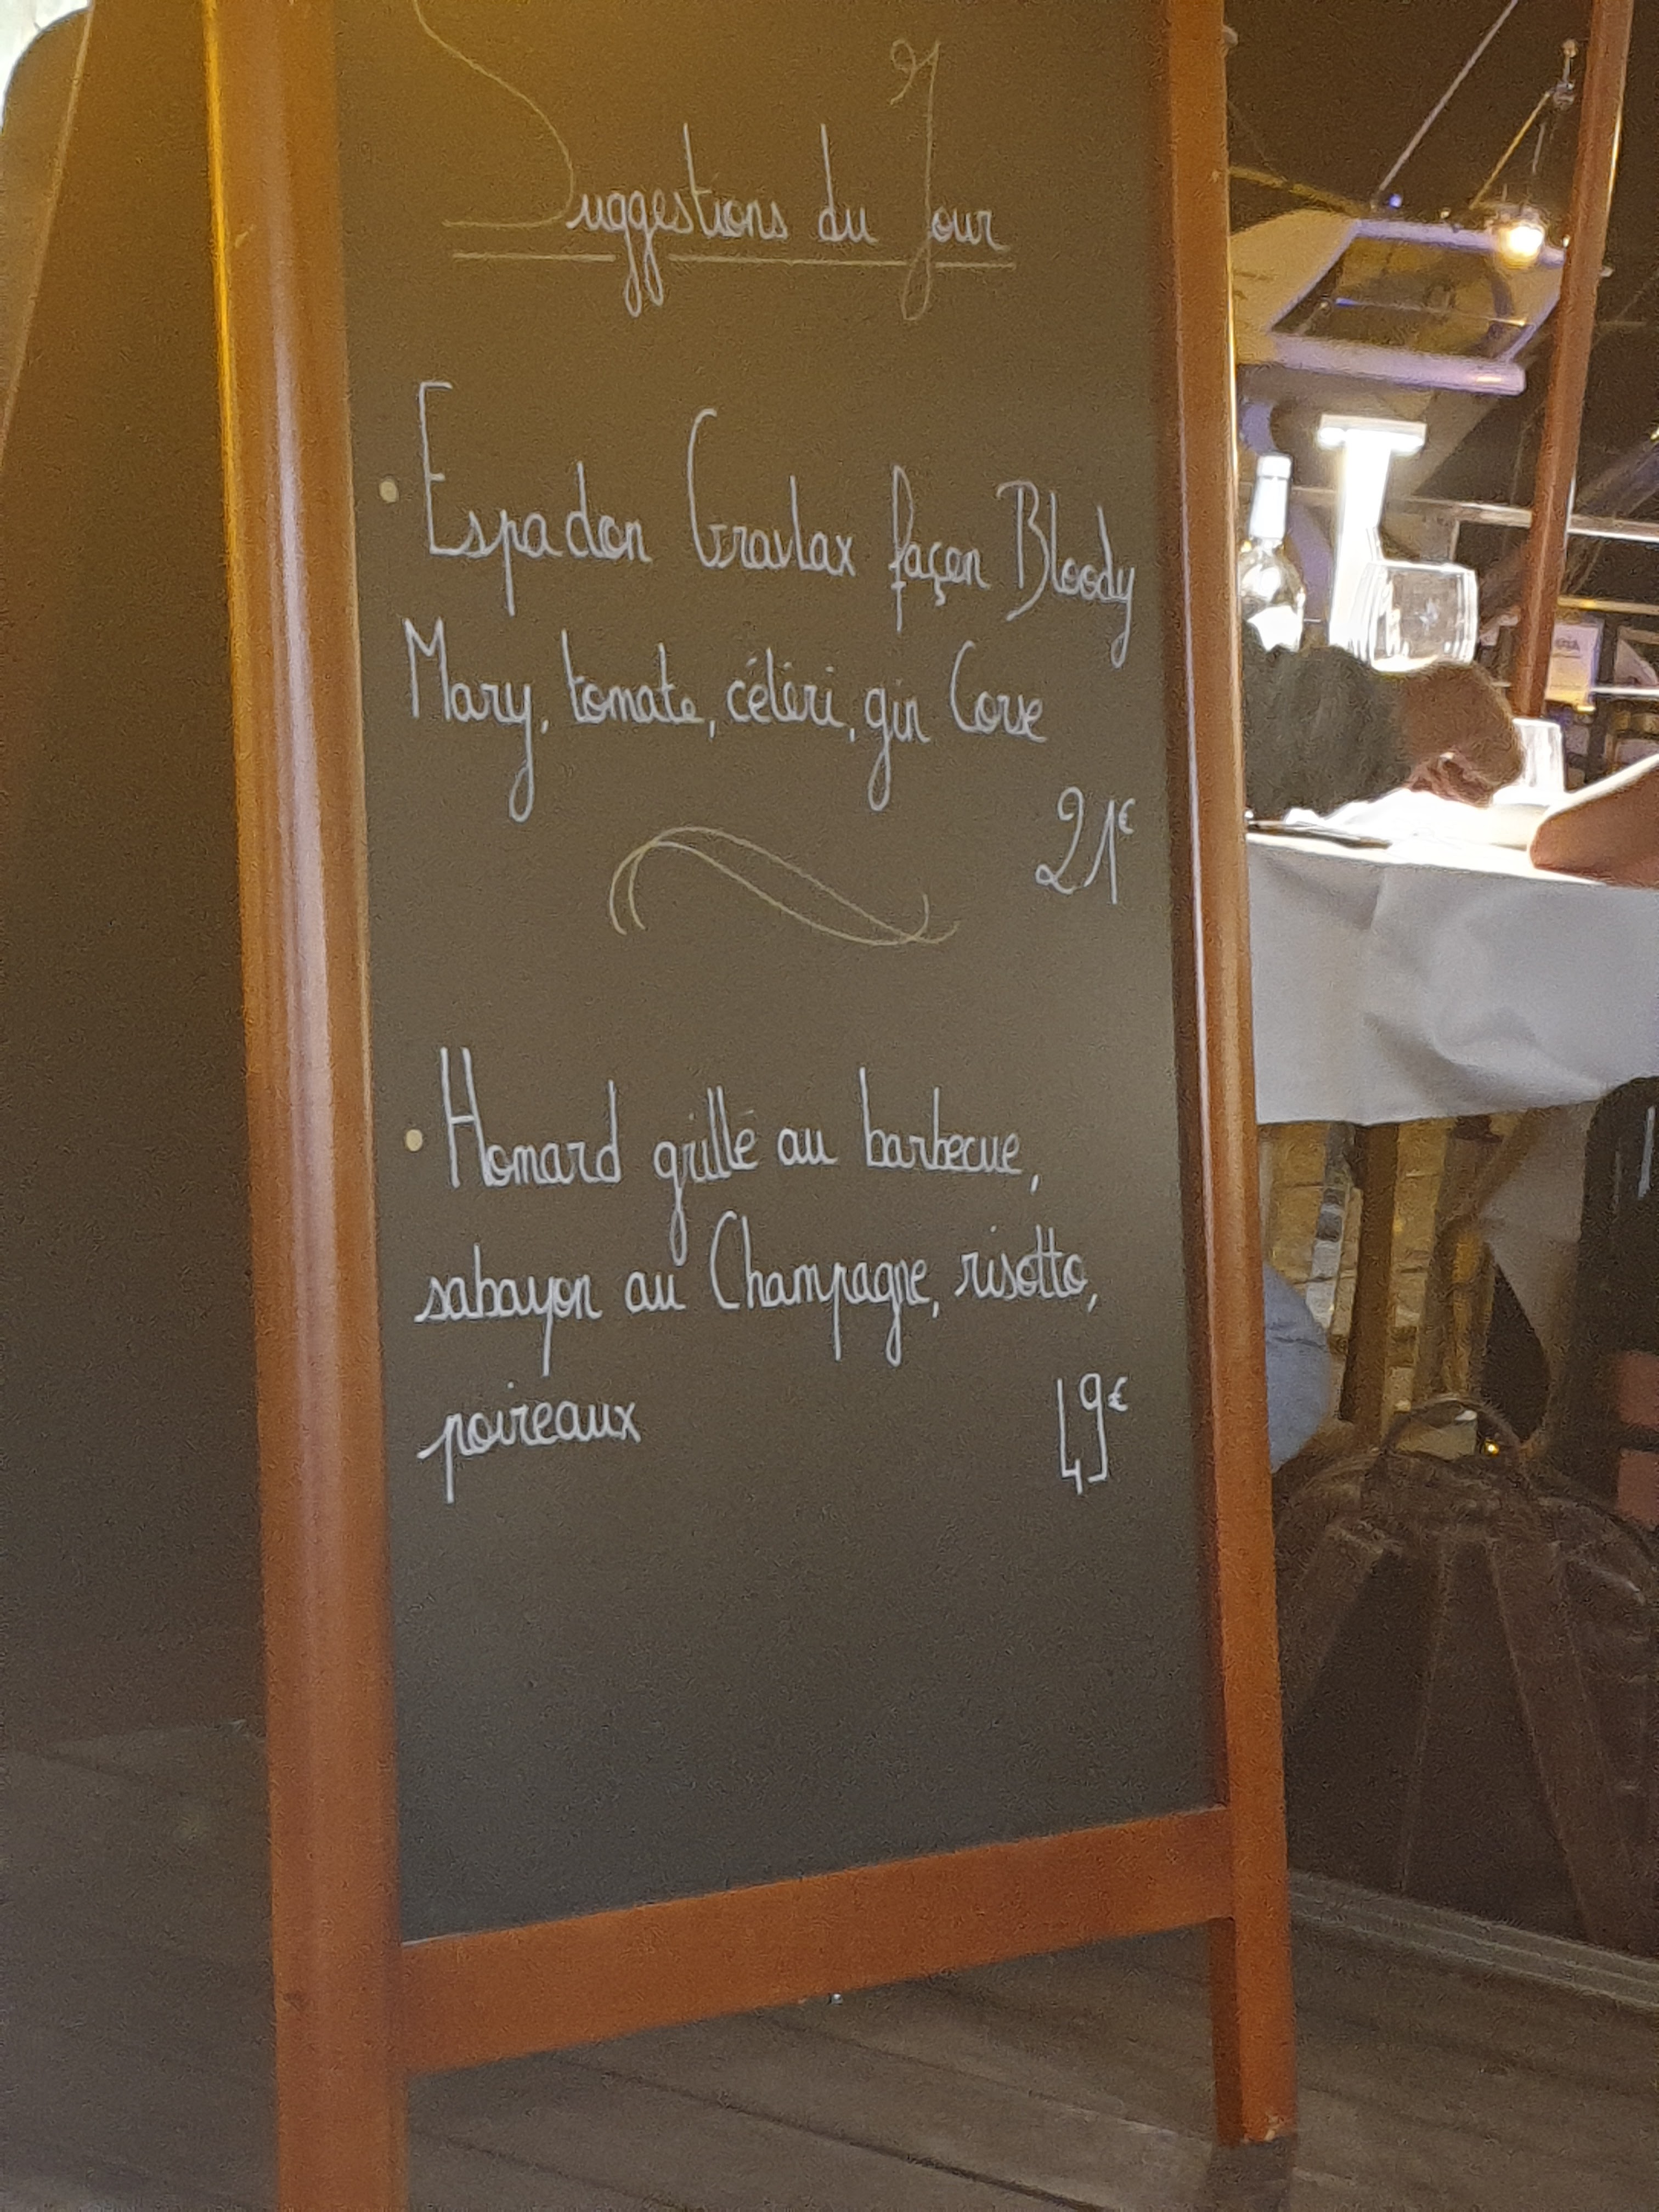 Suggestions du Jour
• Espadon Gravlax façon Bloody
Mary, tomate, céleri, gin Corse
21€
• Homard grillé au barbecue,
sabayon au Champagne, risotto,
poireaux 49€